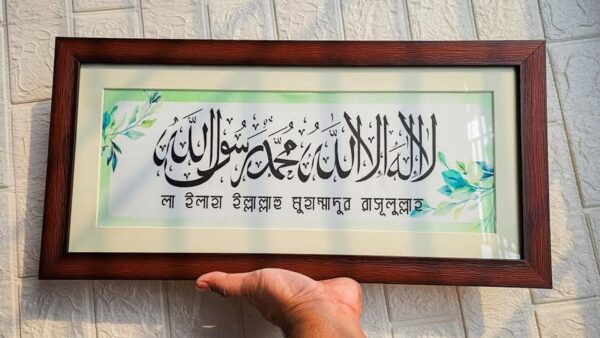 لا إله إلا الله محمد رسول الله
লা ইলাহা ইল্লাল্লাহু মুহাম্মাদুর রাসূলুল্লাহ